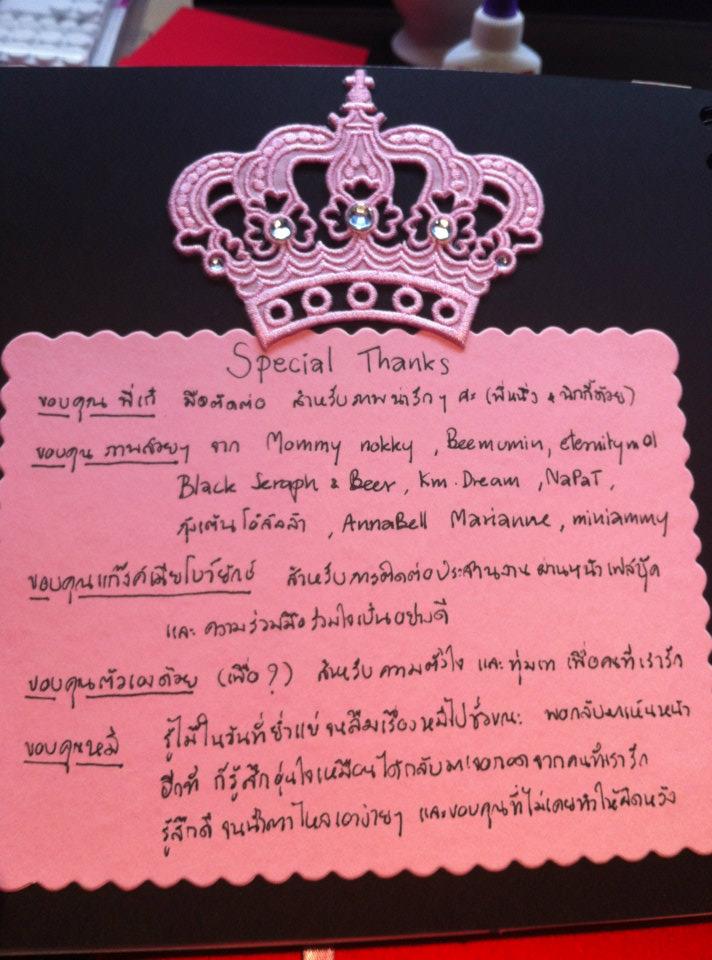 Special Thanks
ขอบคุณ พี่เก๋ มือตัดต่อ สำหรับภาพน่ารักๆ ค่ะ (พี่หนึ่ง & นิกกี้ด้วย)
ขอบคุณ ภาพสวยๆ จาก Mommy nokky, Beemumin, eternitymol
Black Seraph & Beer, Km.Dream, NaPaT,
กุ้งเต้นโอ้ลัลล้า, AnnaBell Marianne, miniammy
ขอบคุณแก๊งค์เฉียโบว์ยักษ์ สำหรับการติดต่อประสานงาน ผ่านหน้าเฟสบุ๊ค
และ ความร่วมมือร่วมใจเป็นอย่างดี
ขอบคุณตัวเองด้วย (เพื่อ?) สำหรับ ความตั้งใจ และ ทุ่มเท เพื่อคนที่เรารัก
ขอบคุณหมี รู้ไม๊ในวันที่ย่ำแย่ จนลืมเรื่องหมีไปชั่วขณะ พอกลับมาเห็นหน้า
อีกที ก็รู้สึกอุ่นใจเหมือนได้กลับมาเจอกอดจากคนที่เรารัก
รู้สึกดี จนน้ำตาไหลเอาง่ายๆ และขอบคุณที่ไม่เคยทำให้ผิดหวัง